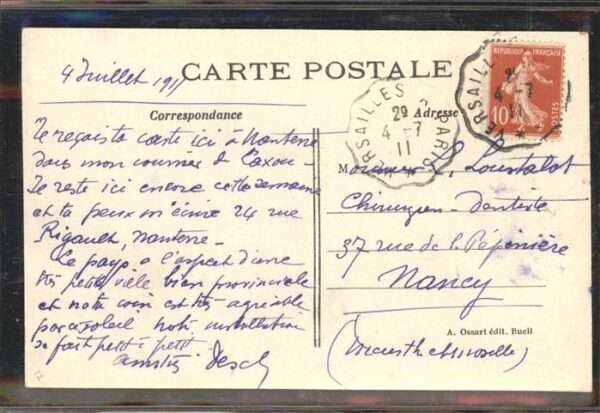 4 Juillet 1911
CARTE POSTALE
Correspondance
Adresse
Je reçois ta carte ici à Nanterre
dans mon courrier de Laxou -
Je reste ici encore cette semaine
et tu peux m'écrire 24 rue
Rigault, Nanterre -
Le pays a l'aspect d'une
très petite ville bien provinciale
et notre coin est très agréable
par ce soleil notre installation
se fait petit à petit
Amitiés
Monsieur L. Loustalot
Chirurgien-Dentiste
37 rue de la Pépinière
Nancy
(Meurthe et Moselle)
A. Ossart édit. Rueil
VERSAILLES A PARIS
2°
4 -7
11
VERSAILLES
2°
4 -7
11
REPUBLIQUE FRANÇAISE
10
POSTES